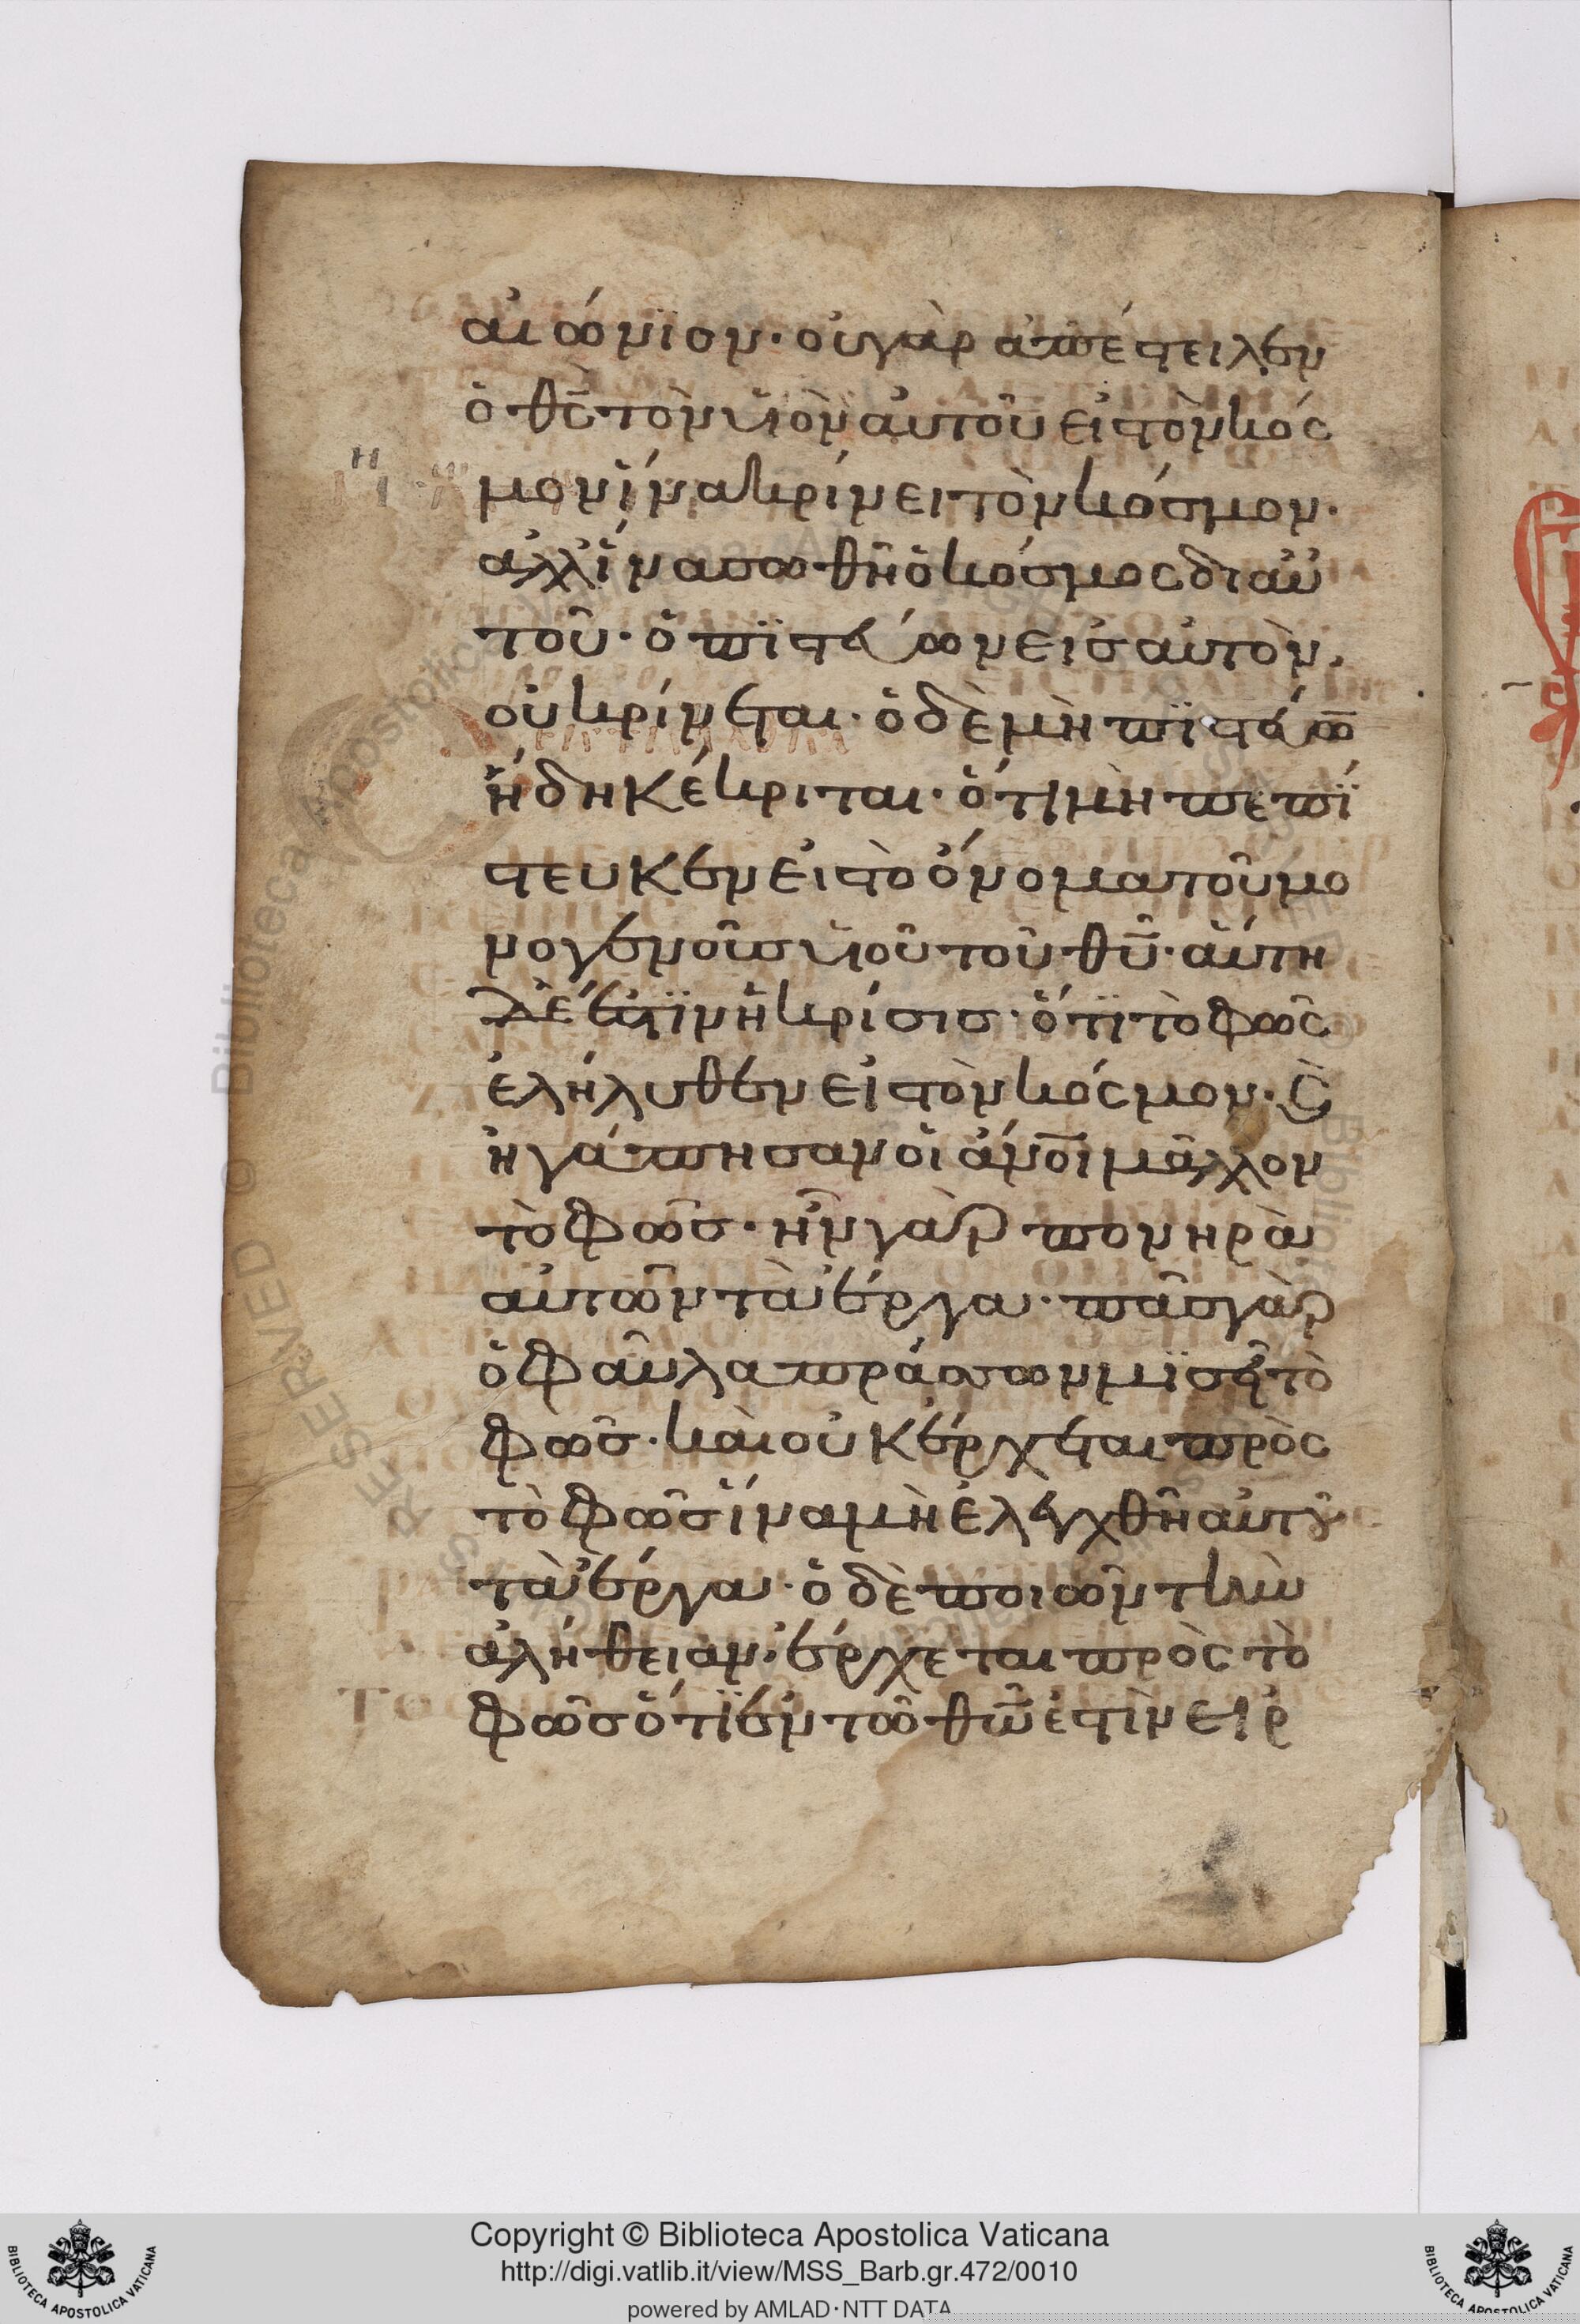 αἰώνϊον· οὐ γὰρ ἀπέστειλεν
ὁ θς̅ τὸν υἱὸν αὐτοῦ εἰς τὸν κόσ
μον ἵνα κρίνει τὸν κόσμον·
ἀλλ ἵνα σωθῆ ὁ κόσμος δι αὐ
τοῦ· ὁ πϊστεύων εἰς αὐτὸν,
οὐ κρίνεται· ὁ δὲ μὴ πϊστεύω̅
ἤδη κέκριται· ὅτι μὴ πεπί
στευκεν εἰς τὸ ὄνομα τοῦ μο
νογενοῦς υἱοῦ τοῦ θυ̅· αὕτη
δέ ἐστϊν ἡ κρίσις· ὅτϊ τὸ φῶς
ἐλήλυθεν εἰς τὸν κόσμον· ϗ̀
ἠγάπησαν οἱ ἄνοι̅ μᾶλλον
τὸ φῶς· ἦν γὰρ πονηρὰ
αὐτῶν τὰ ἔργα· πᾶς γὰρ
ὁ φαῦλα πράσσων μϊσεῖ τὸ
φῶς· καὶ οὐκ ἔρχεται πρὸς
τὸ φῶς ἵνα μὴ ἐλεγχθῆ αὐτοῦ
τὰ ἔργα· ὁ δὲ ποιῶν τὴν
ἀλήθειαν, ἔρχεται πρὸς τὸ
φῶς ὅτϊ ἐν τῶ θω̅ ἐστὶν εἰρ
Copyright © Biblioteca Apostolica Vaticana
http://digi.vatlib.it/view/MSS_Barb.gr.472/0010
powered by AMLAD·NTT DATA
BIBLIOTECA APOSTOLICA VATICANA
BIBLIOTECA APOSTOLICA VATICANA